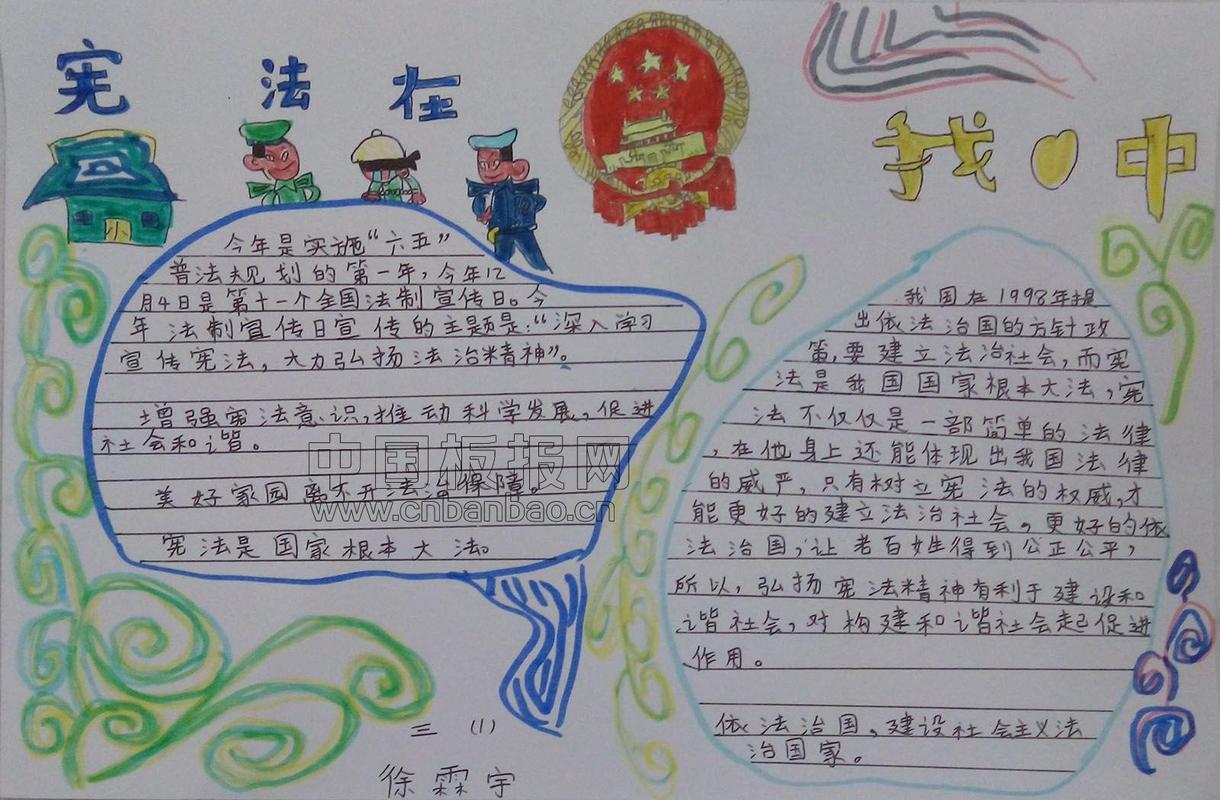 宪法在
我 中
今年是实施“六五”
普法规划的第一年，今年12
月4日是第十一个全国法制宣传日。今
年法制宣传日宣传的主题是：“深入学习
宣传宪法，大力弘扬法治精神”。
增强宪法意识，推动科学发展，促进
社会和谐。
美好家园离不开法治保障。
宪法是国家根本大法。
我国在1998年提
出依法治国的方针政
策，要建立法治社会，而宪
法是我国国家根本大法，宪
法不仅仅是一部简单的法律
，在他身上还能体现出我国法律
的威严，只有树立宪法的权威，才
能更好的建立法治社会。更好的依
法治国，让老百姓得到公正公平，
所以，弘扬宪法精神有利于建设和
谐社会，对构建和谐社会起促进
作用。
依法治国，建设社会主义法
治国家。
三（1）
徐霖宇
中国板报网
www.cnbanbao.cn